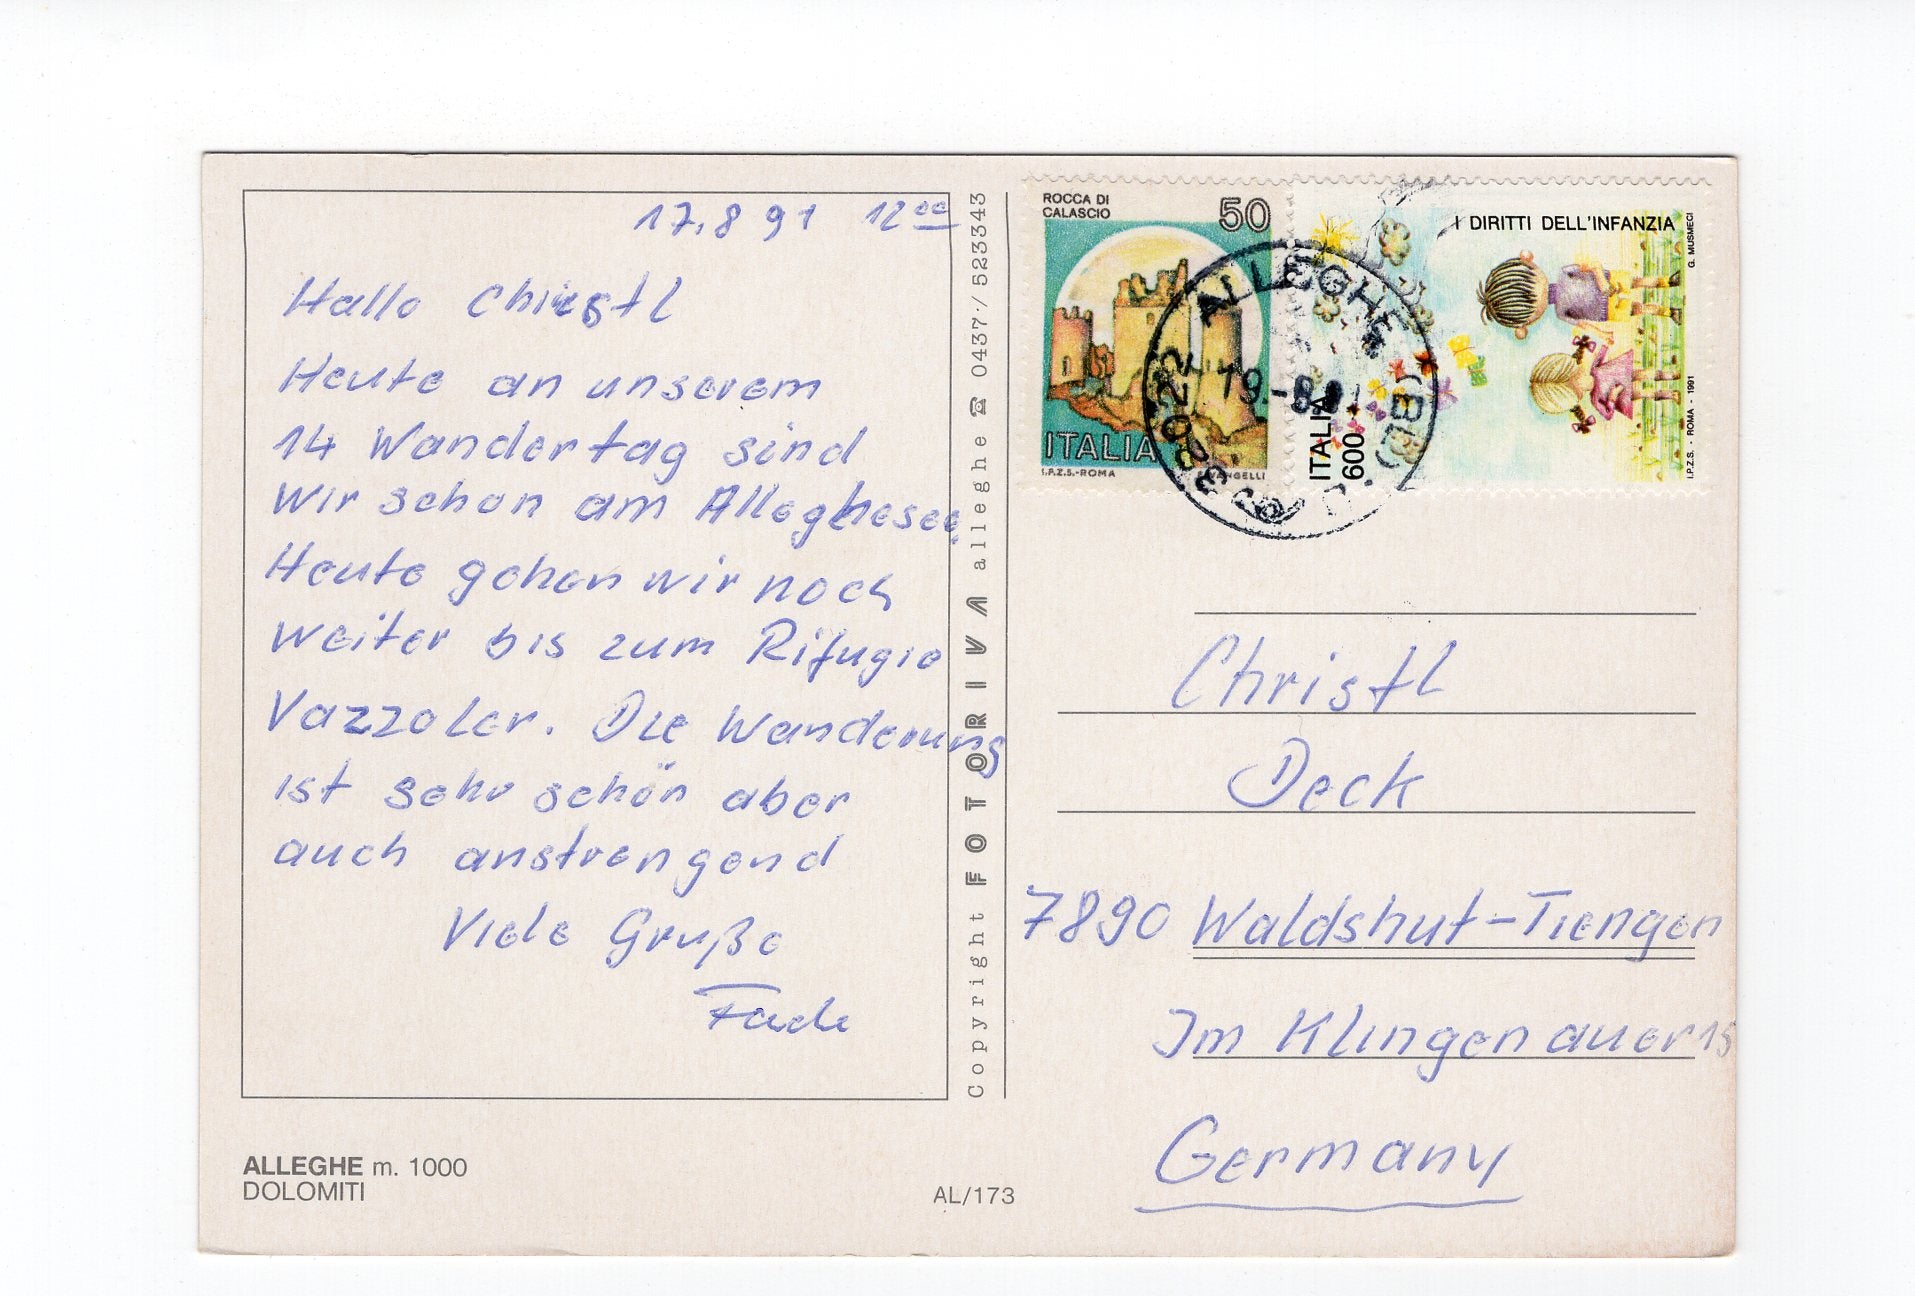 17.8 91 12 00
Hallo Christl
Heute an unserem
14 Wandertag sind
wir schon am Alleghesee.
Heute gehen wir noch
weiter bis zum Rifugio
Vazzoler. Die Wanderung
ist sehr schön aber
auch anstrengend
Viele Gruße
ALLEGHE m. 1000
DOLOMITI
AL/173
Copyright FOTORIVA alleghe ☎ 0437/523343
ROCCA DI
CALASCIO
50
ITALIA
I.P.Z.S.-ROMA
I DIRITTI DELL'INFANZIA
G. MUSMECI
ITALIA
600
I.P.Z.S. - ROMA - 1991
ALLEGHE
32022
(BL)
Christl
Deck
7890 Waldshut-Tiengen
Im Klingenauer 15
Germany